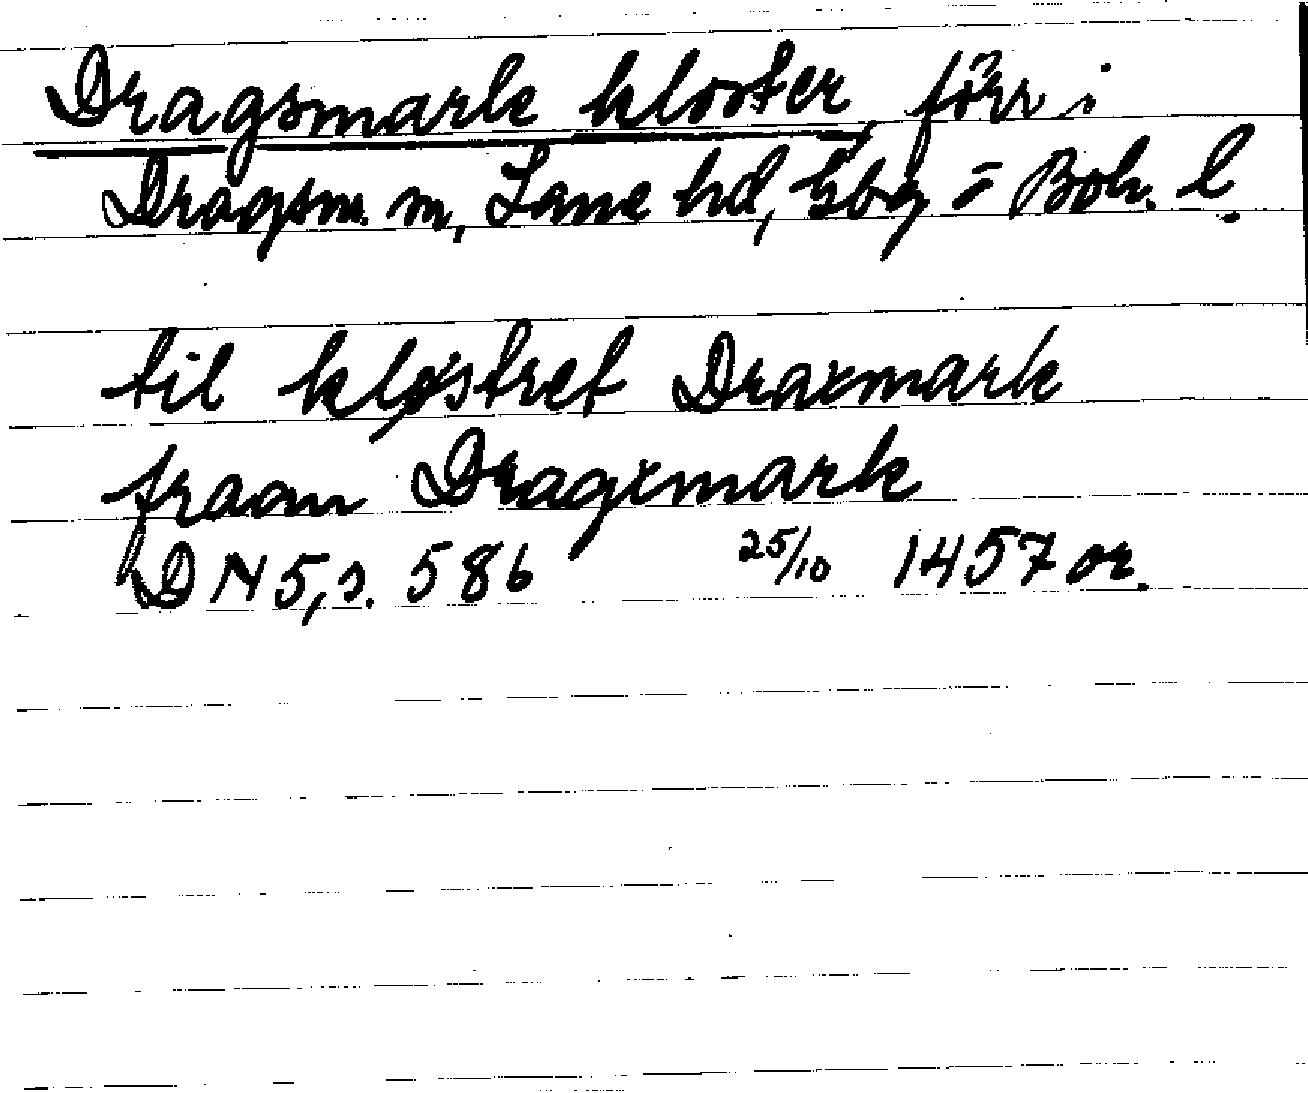 Dragsmark kloster, förr i
Dragsm. sn, Lane hd, Gbg o Boh. l.
til kløstret Draxmark
fraam Dragxmark
DN 5, s. 586 25/10 1457 or.